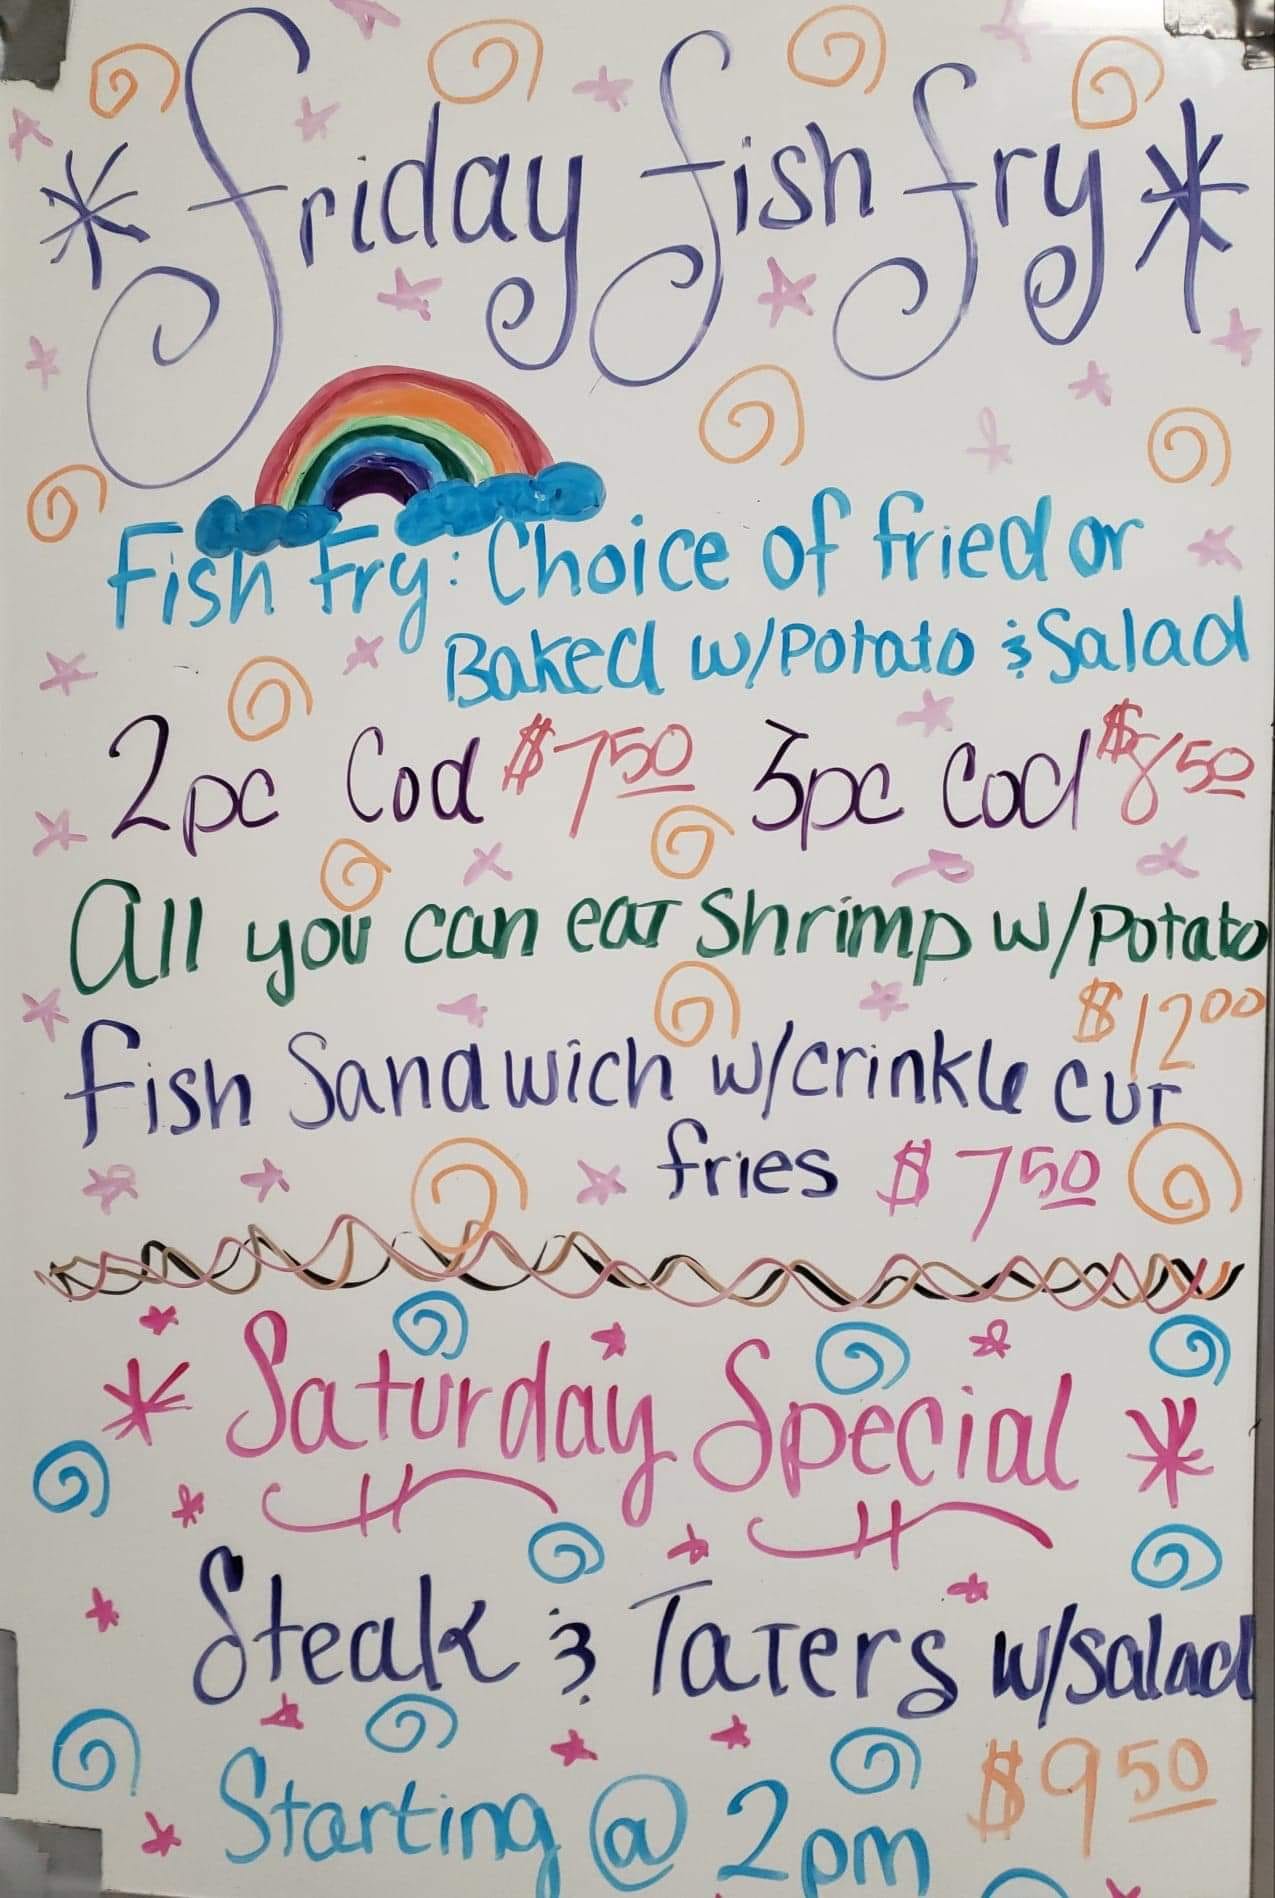 * Friday Fish Fry *
Fish Fry: Choice of fried or
Baked w/Potato & Salad
2pc Cod $7.50 3pc Cod $8.50
All you can eat Shrimp w/Potato
$12.00
Fish Sandwich w/crinkle cut
fries $7.50
* Saturday Special *
Steak & Taters w/salad
$9.50
Starting @ 2pm